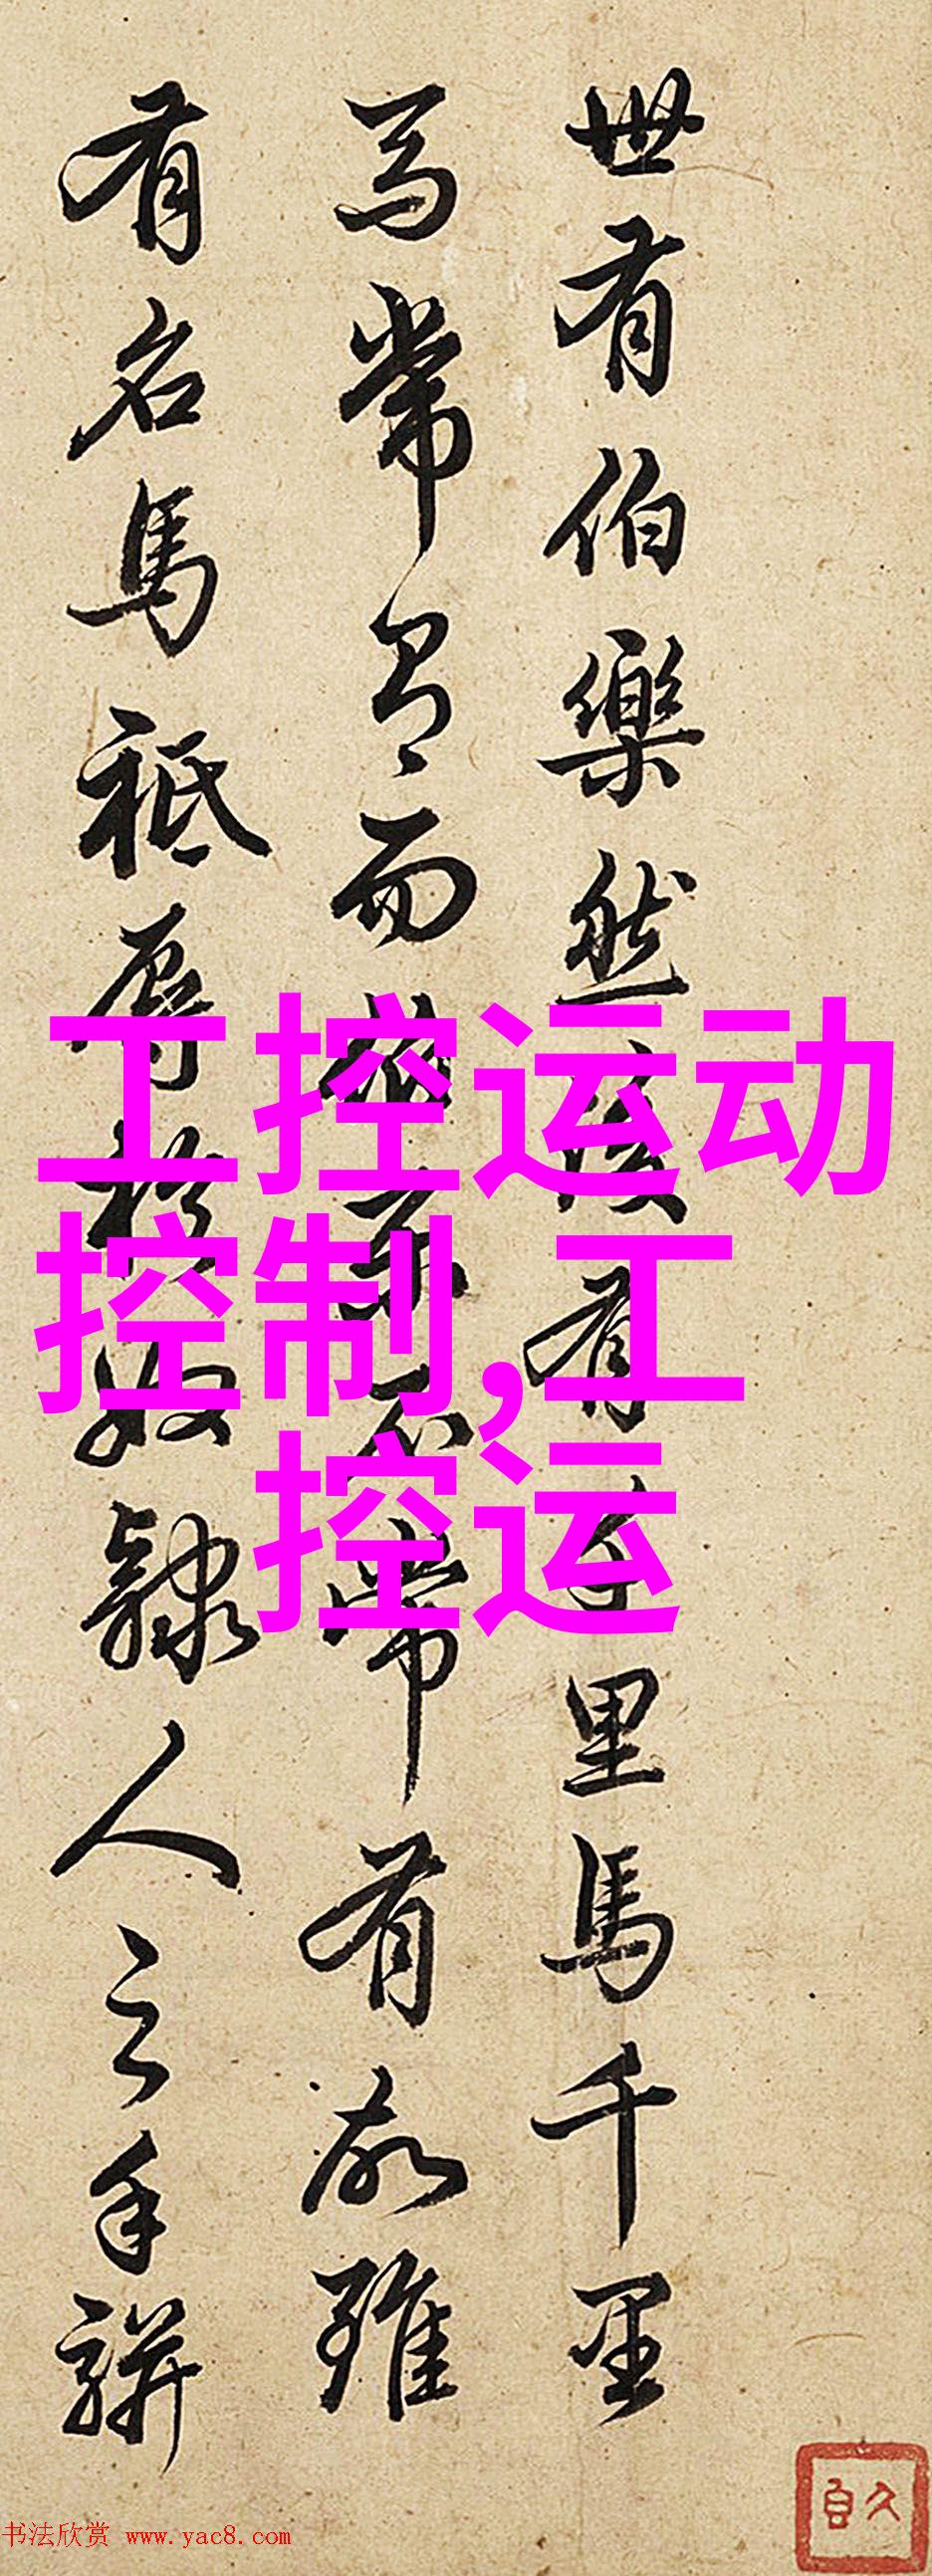 世有伯樂然後有千里馬千里
馬常有而伯樂不常有故雖
有名馬祗辱於奴隸人之手駢
工控运动
控制,工
控运
书法欣赏 www.yac8.com